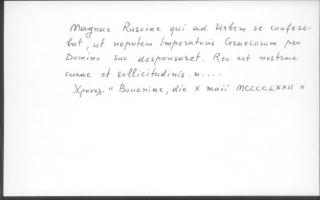 Magnae Russiae qui ad Urbem se confere-
bat, ut nepotem Imperatoris Graecorum pro
Domino suo desponsaret. Res est nostrae
curae et sollicitudinis."....
Хронол. "Bononiae, die X maii MCCCCLXXII"